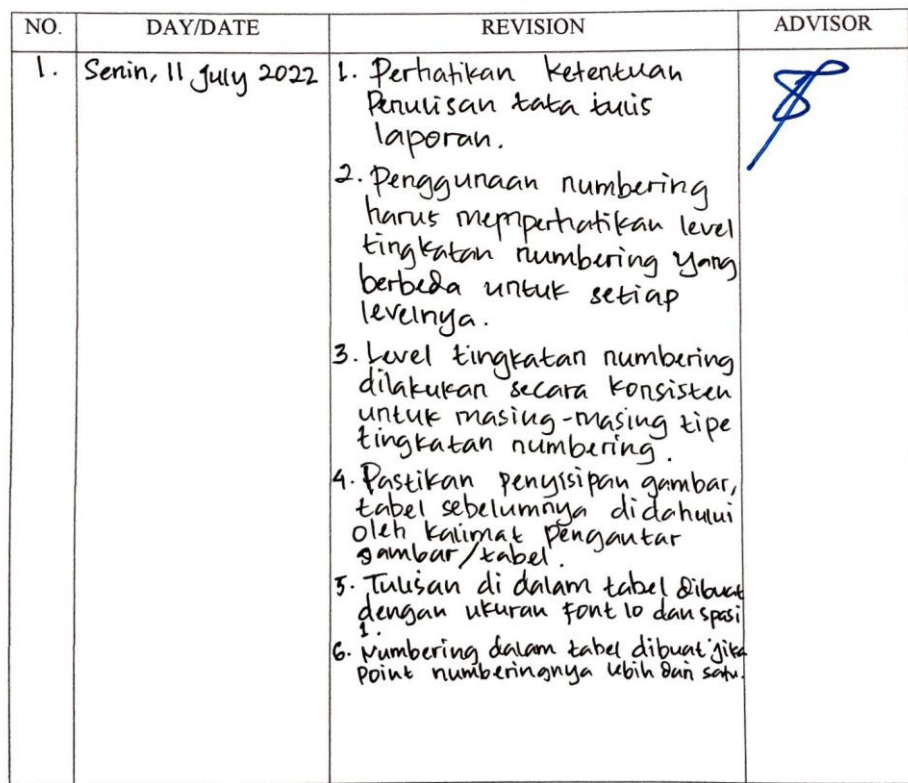 NO. DAY/DATE REVISION ADVISOR
1. Senin, 11 July 2022 1. Perhatikan ketentuan
Penulisan tata tulis
laporan.
2. Penggunaan numbering
harus memperhatikan level
tingkatan numbering yang
berbeda untuk setiap
levelnya.
3. Level tingkatan numbering
dilakukan secara konsisten
untuk masing-masing tipe
tingkatan numbering.
4. Pastikan penyisipan gambar,
tabel sebelumnya didahului
oleh kalimat pengantar
gambar/tabel.
5. Tulisan di dalam tabel dibuat
dengan ukuran font 10 dan spasi
1.
6. Numbering dalam tabel dibuat jika
Point numberingnya lebih dari satu.